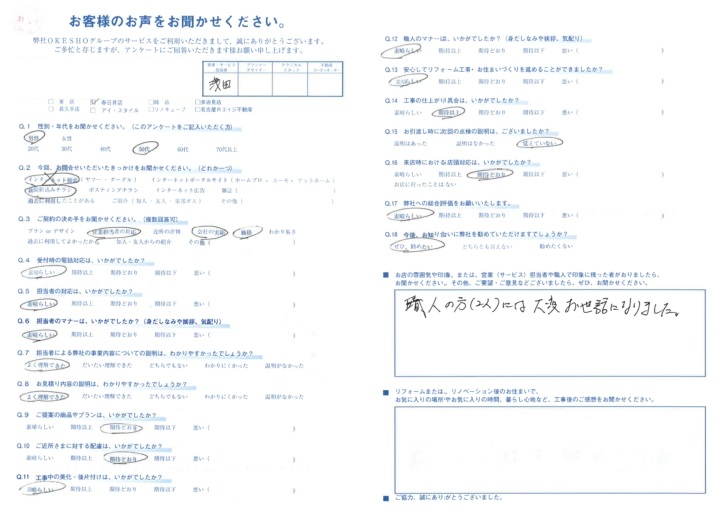 お客様のお声をお聞かせください。
弊社OKESHOグループのサービスをご利用いただきまして、誠にありがとうございます。
ご多忙と存じますが、アンケートにご回答いただきます様お願い申し上げます。
浅田
□ 本店 ☑ 春日井店 □ 緑店 □ 多治見店
□ 長久手店 □ アイ・スタイル □ リノキューブ □ 名古屋ネイシア不動産
Q.1 性別・年代をお聞かせください。（このアンケートをご記入いただく方）
男性 女性
20代 30代 40代 50代 60代 70代以上
Q.2 今回、お問合せいただいたきっかけをお聞かせください。（どれか一つ）
インターネット検索（ヤフー・グーグル） インターネットポータルサイト（ホームプロ・スーモ・アットホーム）
新聞折込みチラシ ポスティングチラシ インターネット広告 雑誌（ ）
過去に利用したことがある ご紹介（知人・友人・東邦ガス） その他（ ）
Q.3 ご契約の決め手をお聞かせください。（複数回答可）
プラン or デザイン 営業担当者の対応 近所の評判 会社の実績 価格 わかり易さ
過去に利用してよかったから 知人・友人からの紹介 その他（ ）
Q.4 受付時の電話対応は、いかがでしたか？
素晴らしい 期待以上 期待どおり 期待以下 悪い（ ）
Q.5 担当者の対応は、いかがでしたか？
素晴らしい 期待以上 期待どおり 期待以下 悪い（ ）
Q.6 担当者のマナーは、いかがでしたか？（身だしなみや挨拶、気配り）
素晴らしい 期待以上 期待どおり 期待以下 悪い（ ）
Q.7 担当者による弊社の事業内容についての説明は、わかりやすかったでしょうか？
よく理解できた だいたい理解できた どちらでもない わかりにくかった 説明がなかった
Q.8 お見積り内容の説明は、わかりやすかったでしょうか？
よく理解できた だいたい理解できた どちらでもない わかりにくかった 説明がなかった
Q.9 ご提案の商品やプランは、いかがでしたか？
素晴らしい 期待以上 期待どおり 期待以下 悪い（ ）
Q.10 ご近所さまに対する配慮は、いかがでしたか？
素晴らしい 期待以上 期待どおり 期待以下 悪い（ ）
Q.11 工事中の美化・後片付けは、いかがでしたか？
素晴らしい 期待以上 期待どおり 期待以下 悪い（ ）
Q.12 職人のマナーは、いかがでしたか？（身だしなみや挨拶、気配り）
素晴らしい 期待以上 期待どおり 期待以下 悪い（ ）
Q.13 安心してリフォーム工事・お住まいづくりを進めることができましたか？
素晴らしい 期待以上 期待どおり 期待以下 悪い（ ）
Q.14 工事の仕上がり具合は、いかがでしたか？
素晴らしい 期待以上 期待どおり 期待以下 悪い（ ）
Q.15 お引渡し時に次回の点検の説明は、ございましたか？
説明はあった 説明はなかった 覚えていない
Q.16 来店時における店頭対応は、いかがでしたか？
素晴らしい 期待以上 期待どおり 期待以下 悪い（ ）
お店に行ったことはない
Q.17 弊社への総合評価をお願いします。
素晴らしい 期待以上 期待どおり 期待以下 悪い（ ）
Q.18 今後、お知り合いに弊社を勧めていただけますでしょうか？
ぜひ、勧めたい どちらとも言えない 勧めたくない
■ お店の雰囲気や印象、または、営業（サービス）担当者や職人で印象に残った者がおりましたら、
お聞かせください。その他、ご要望・ご意見などございましたら、ぜひ、お聞かせください。
職人の方（2人）には大変お世話になりました。
■ リフォームまたは、リノベーション後のお住まいで、
お気に入りの場所やお気に入りの時間、暮らし心地など、工事後のご感想をお聞かせください。
■ ご協力、誠にありがとうございました。